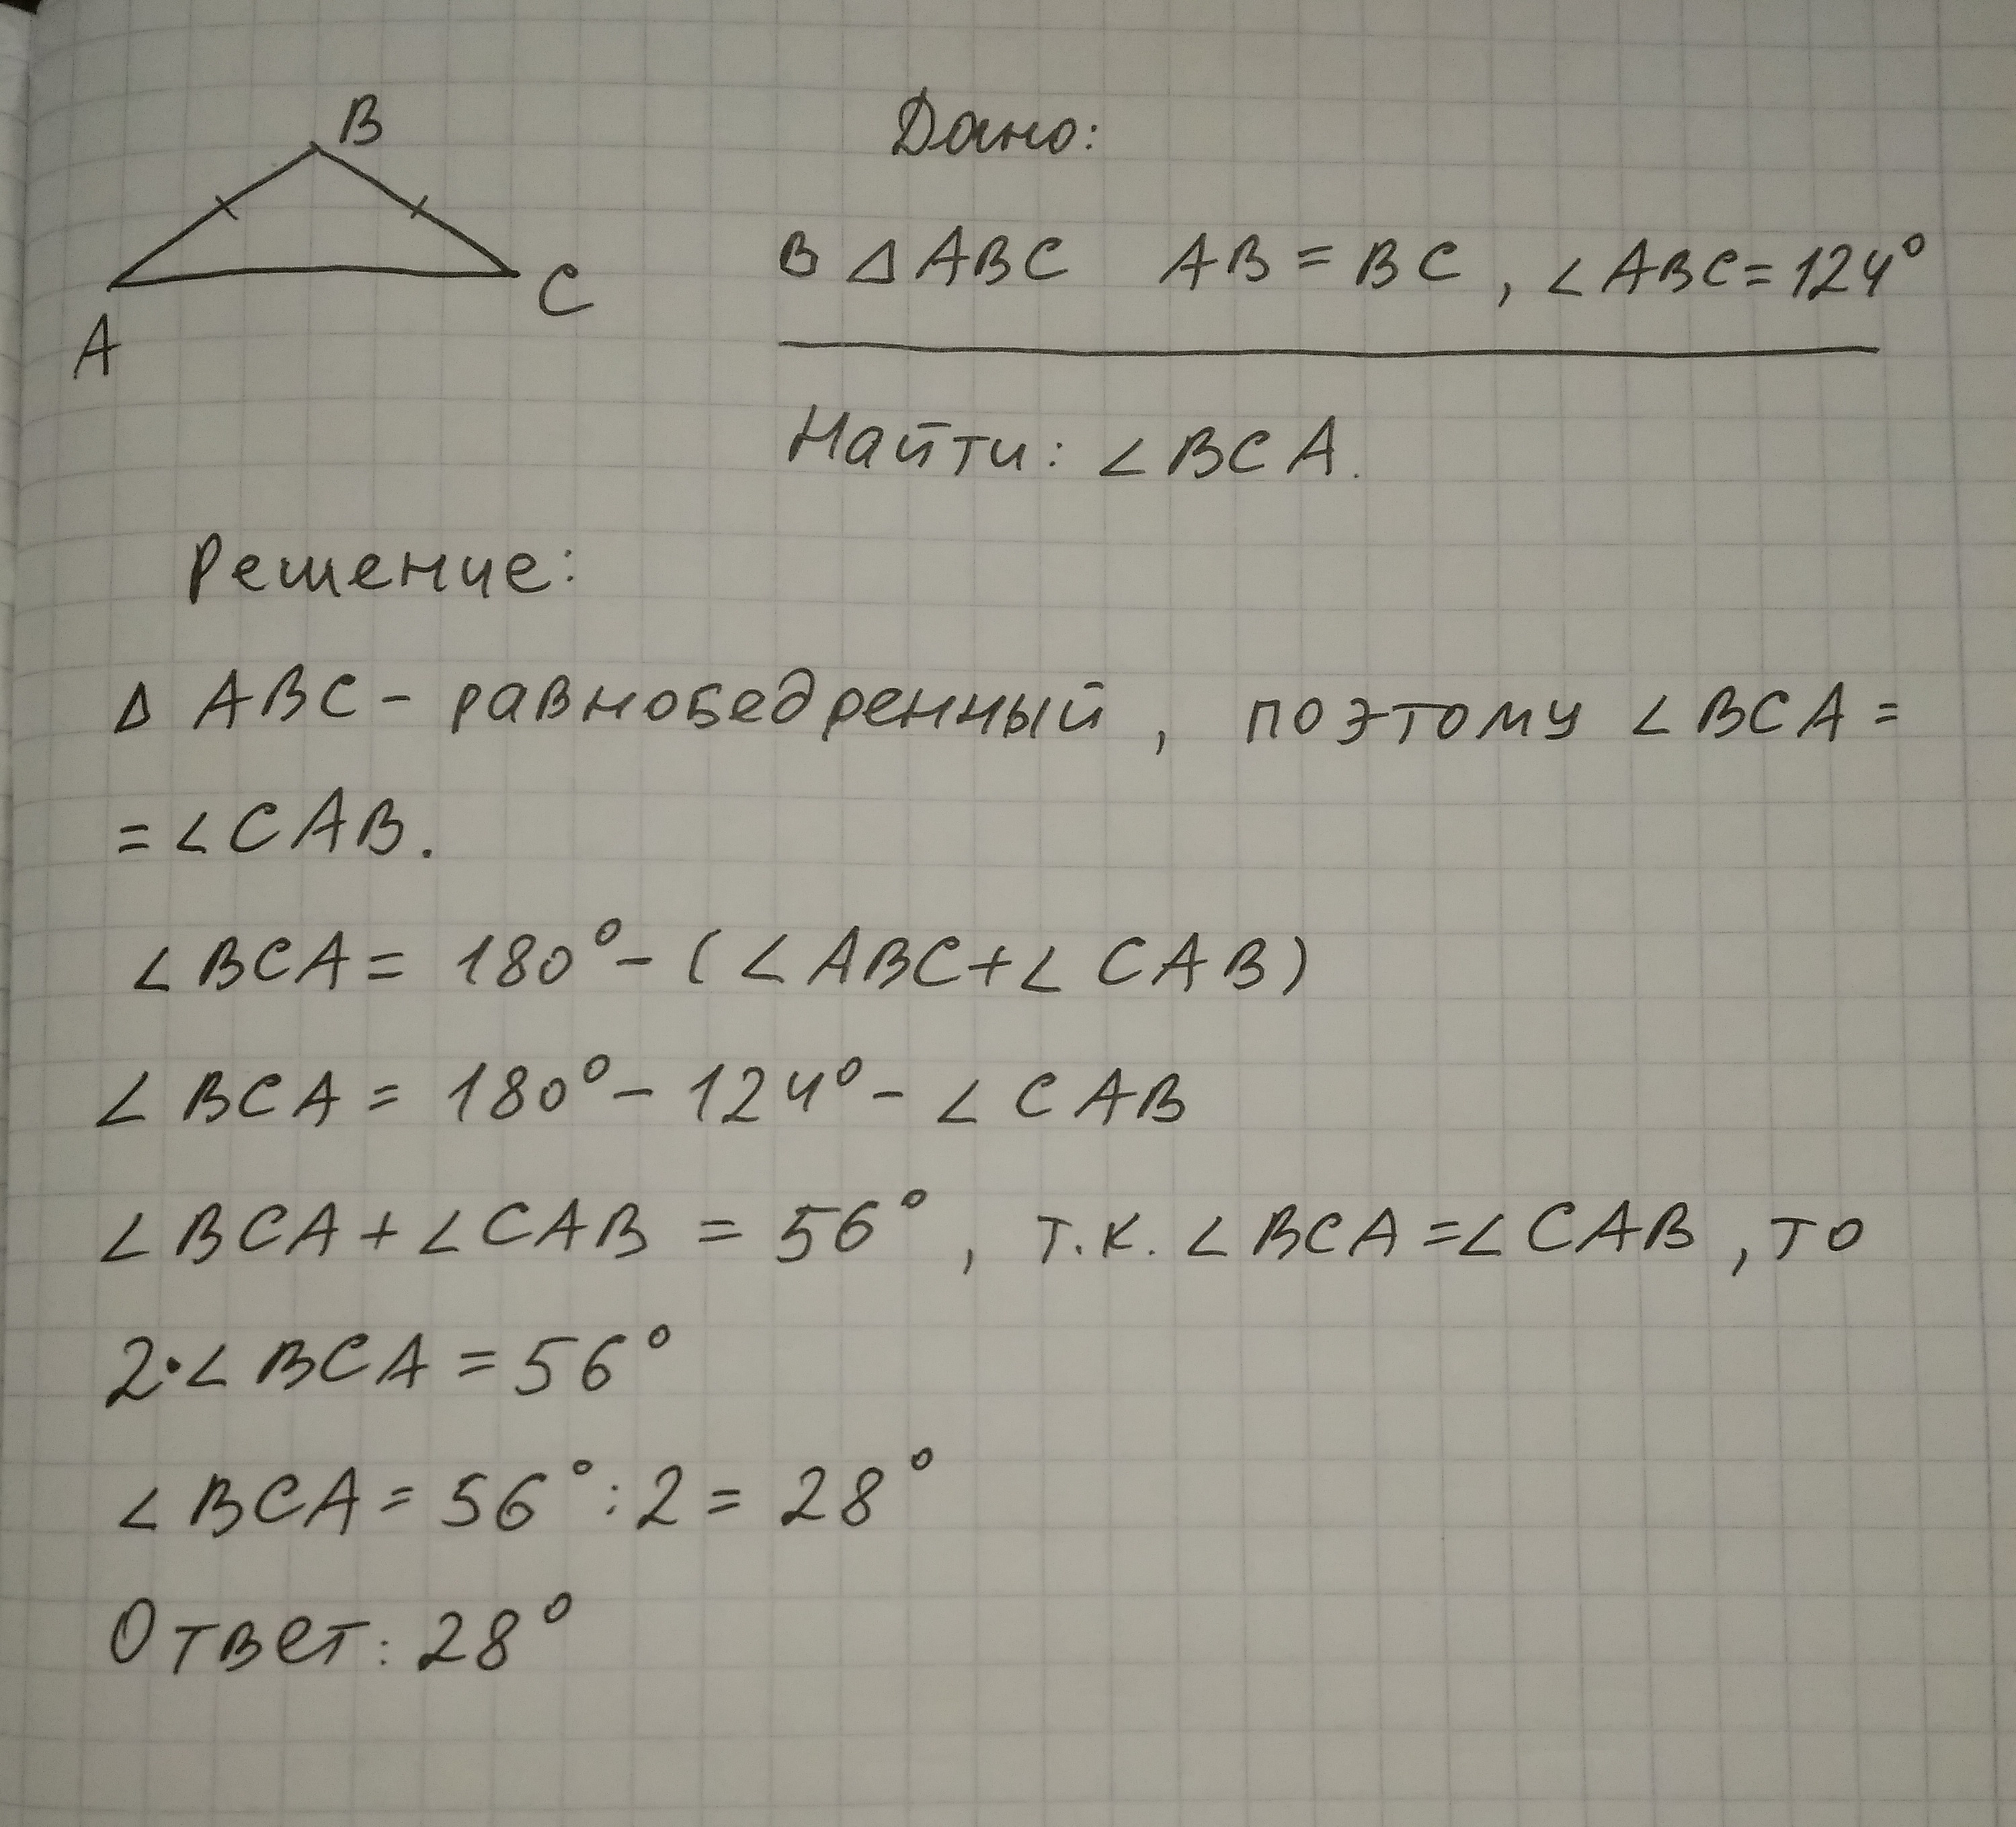 B
A
C
Дано:
В △ABC AB = BC, ∠ABC = 124°
Найти: ∠BCA.
Решение:
△ ABC - равнобедренный, поэтому ∠BCA =
= ∠CAB.
∠BCA = 180° - (∠ABC + ∠CAB)
∠BCA = 180° - 124° - ∠CAB
∠BCA + ∠CAB = 56°, т.к. ∠BCA = ∠CAB, то
2·∠BCA = 56°
∠BCA = 56° : 2 = 28°
Ответ: 28°